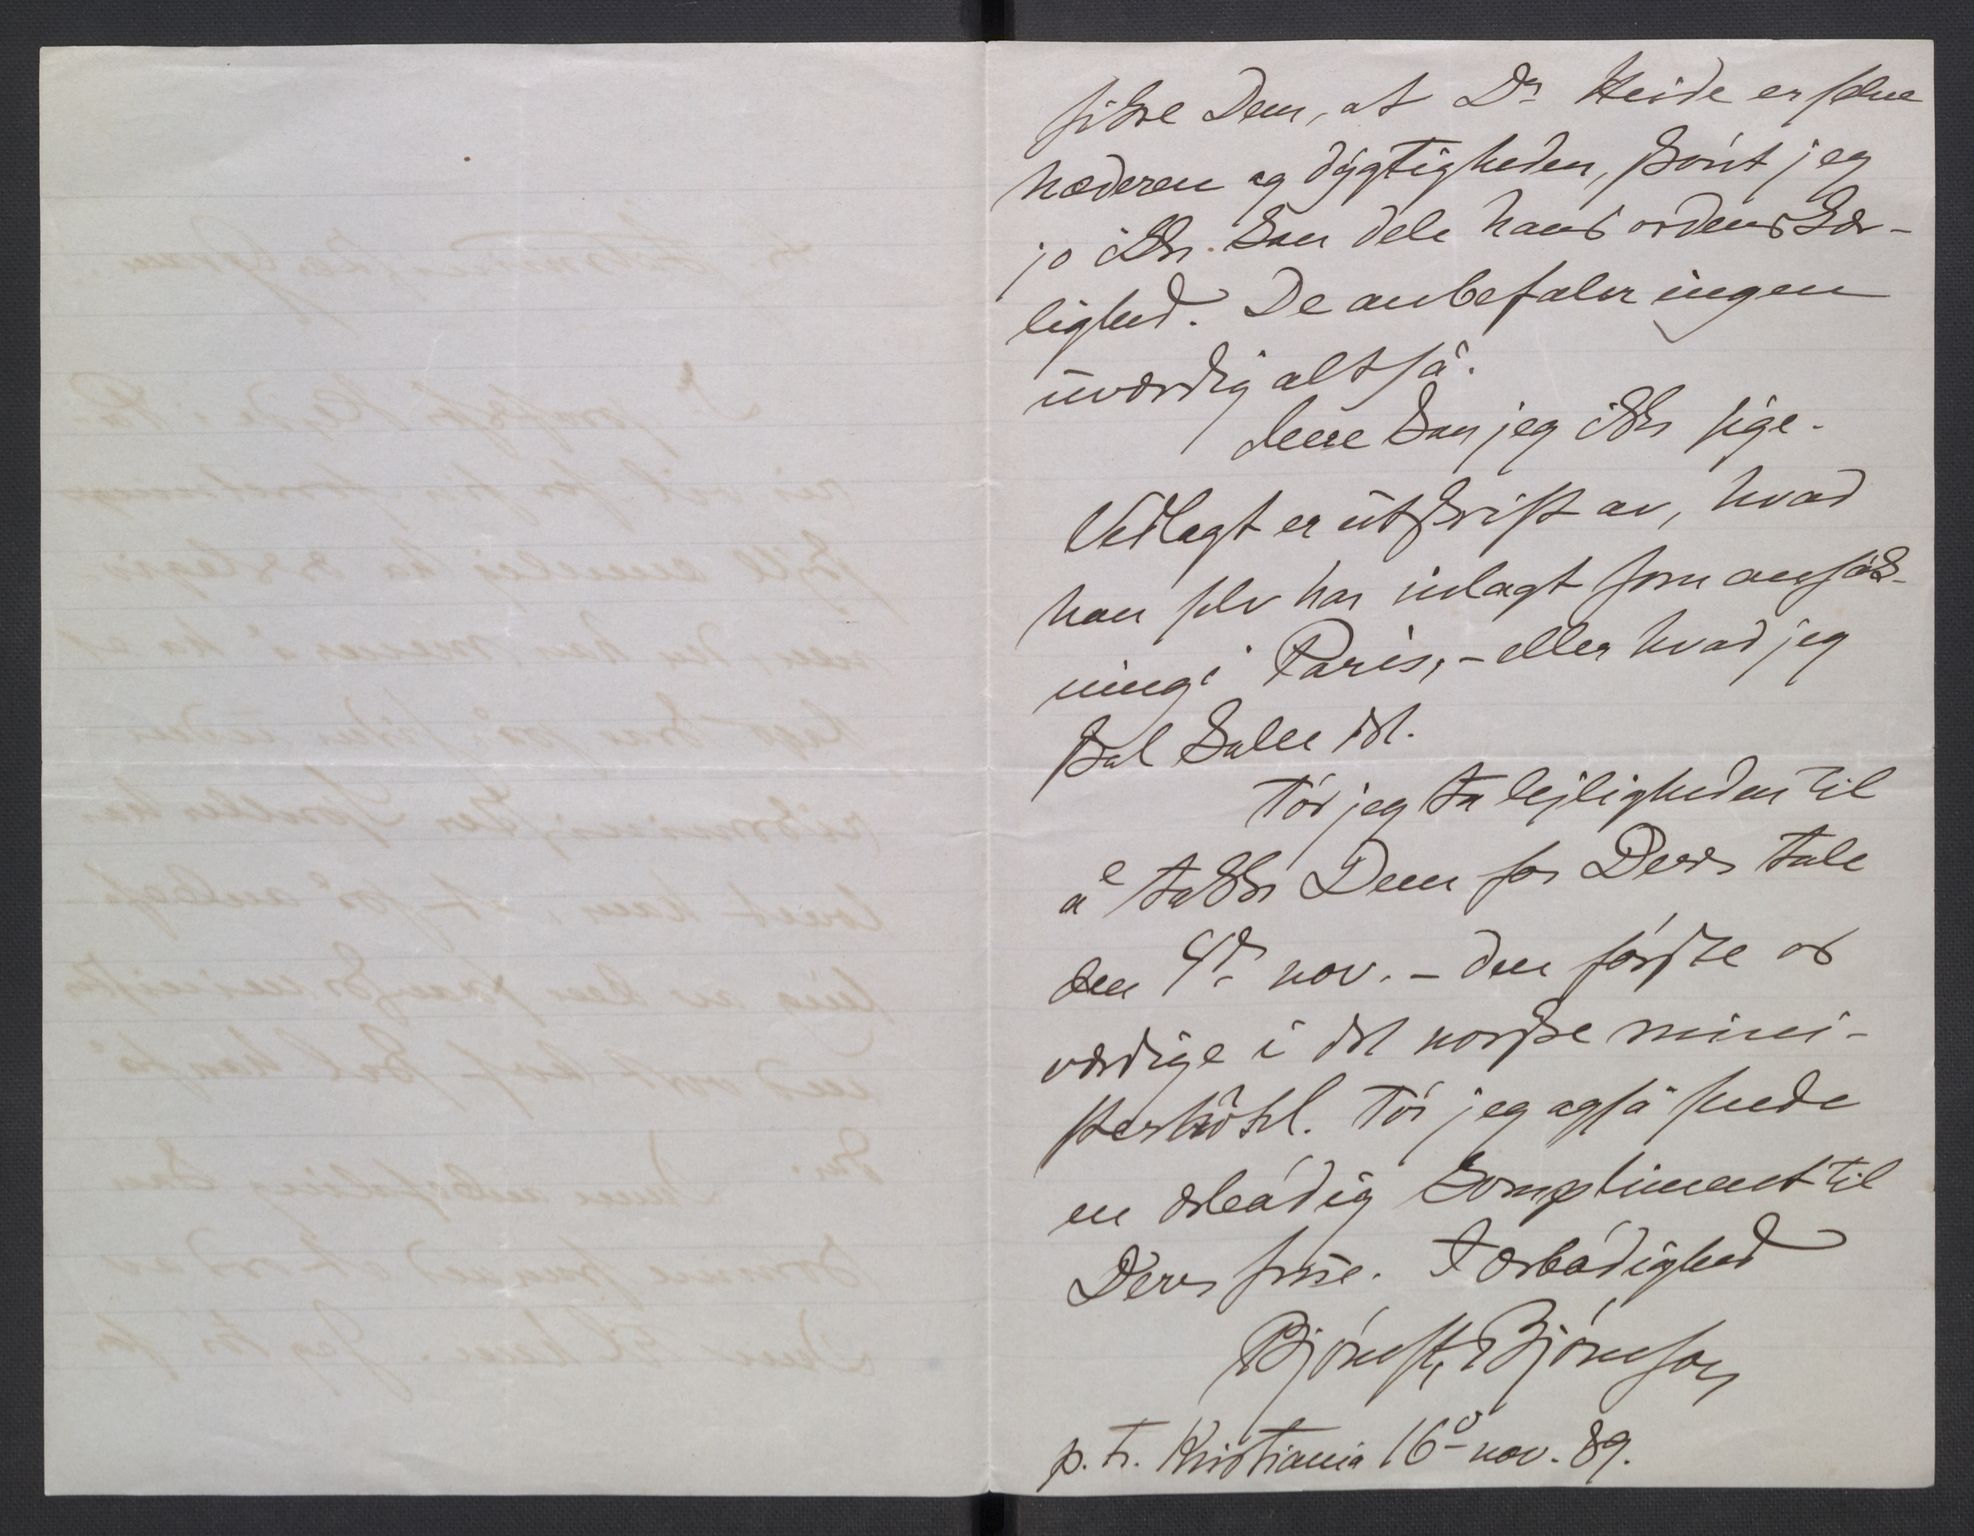 sikre Dem, at Dr Heide er selve
hæderen og dygtigheden, skönt jeg
jo ikke kan dele hans ordenskær-
lighed. De anbefaler ingen
uværdig altså.
Mere kan jeg ikke sige.
Vedlagt er utskrift av, hvad
han selv har inlagt som ansøk-
ning i Paris, – eller hvad jeg
skal kalle det.
Tör jeg ta lejligheden til
å takke Dem for Deres tale
den 4de nov. – den förske og
værdige i det norske mini-
sterhötel. Tör jeg også sende
en ærbödig kompliment til
Deres frue. I ærbödighed
Bjørnst. Bjørnson
p. t. Kristiania 16d nov. 89.